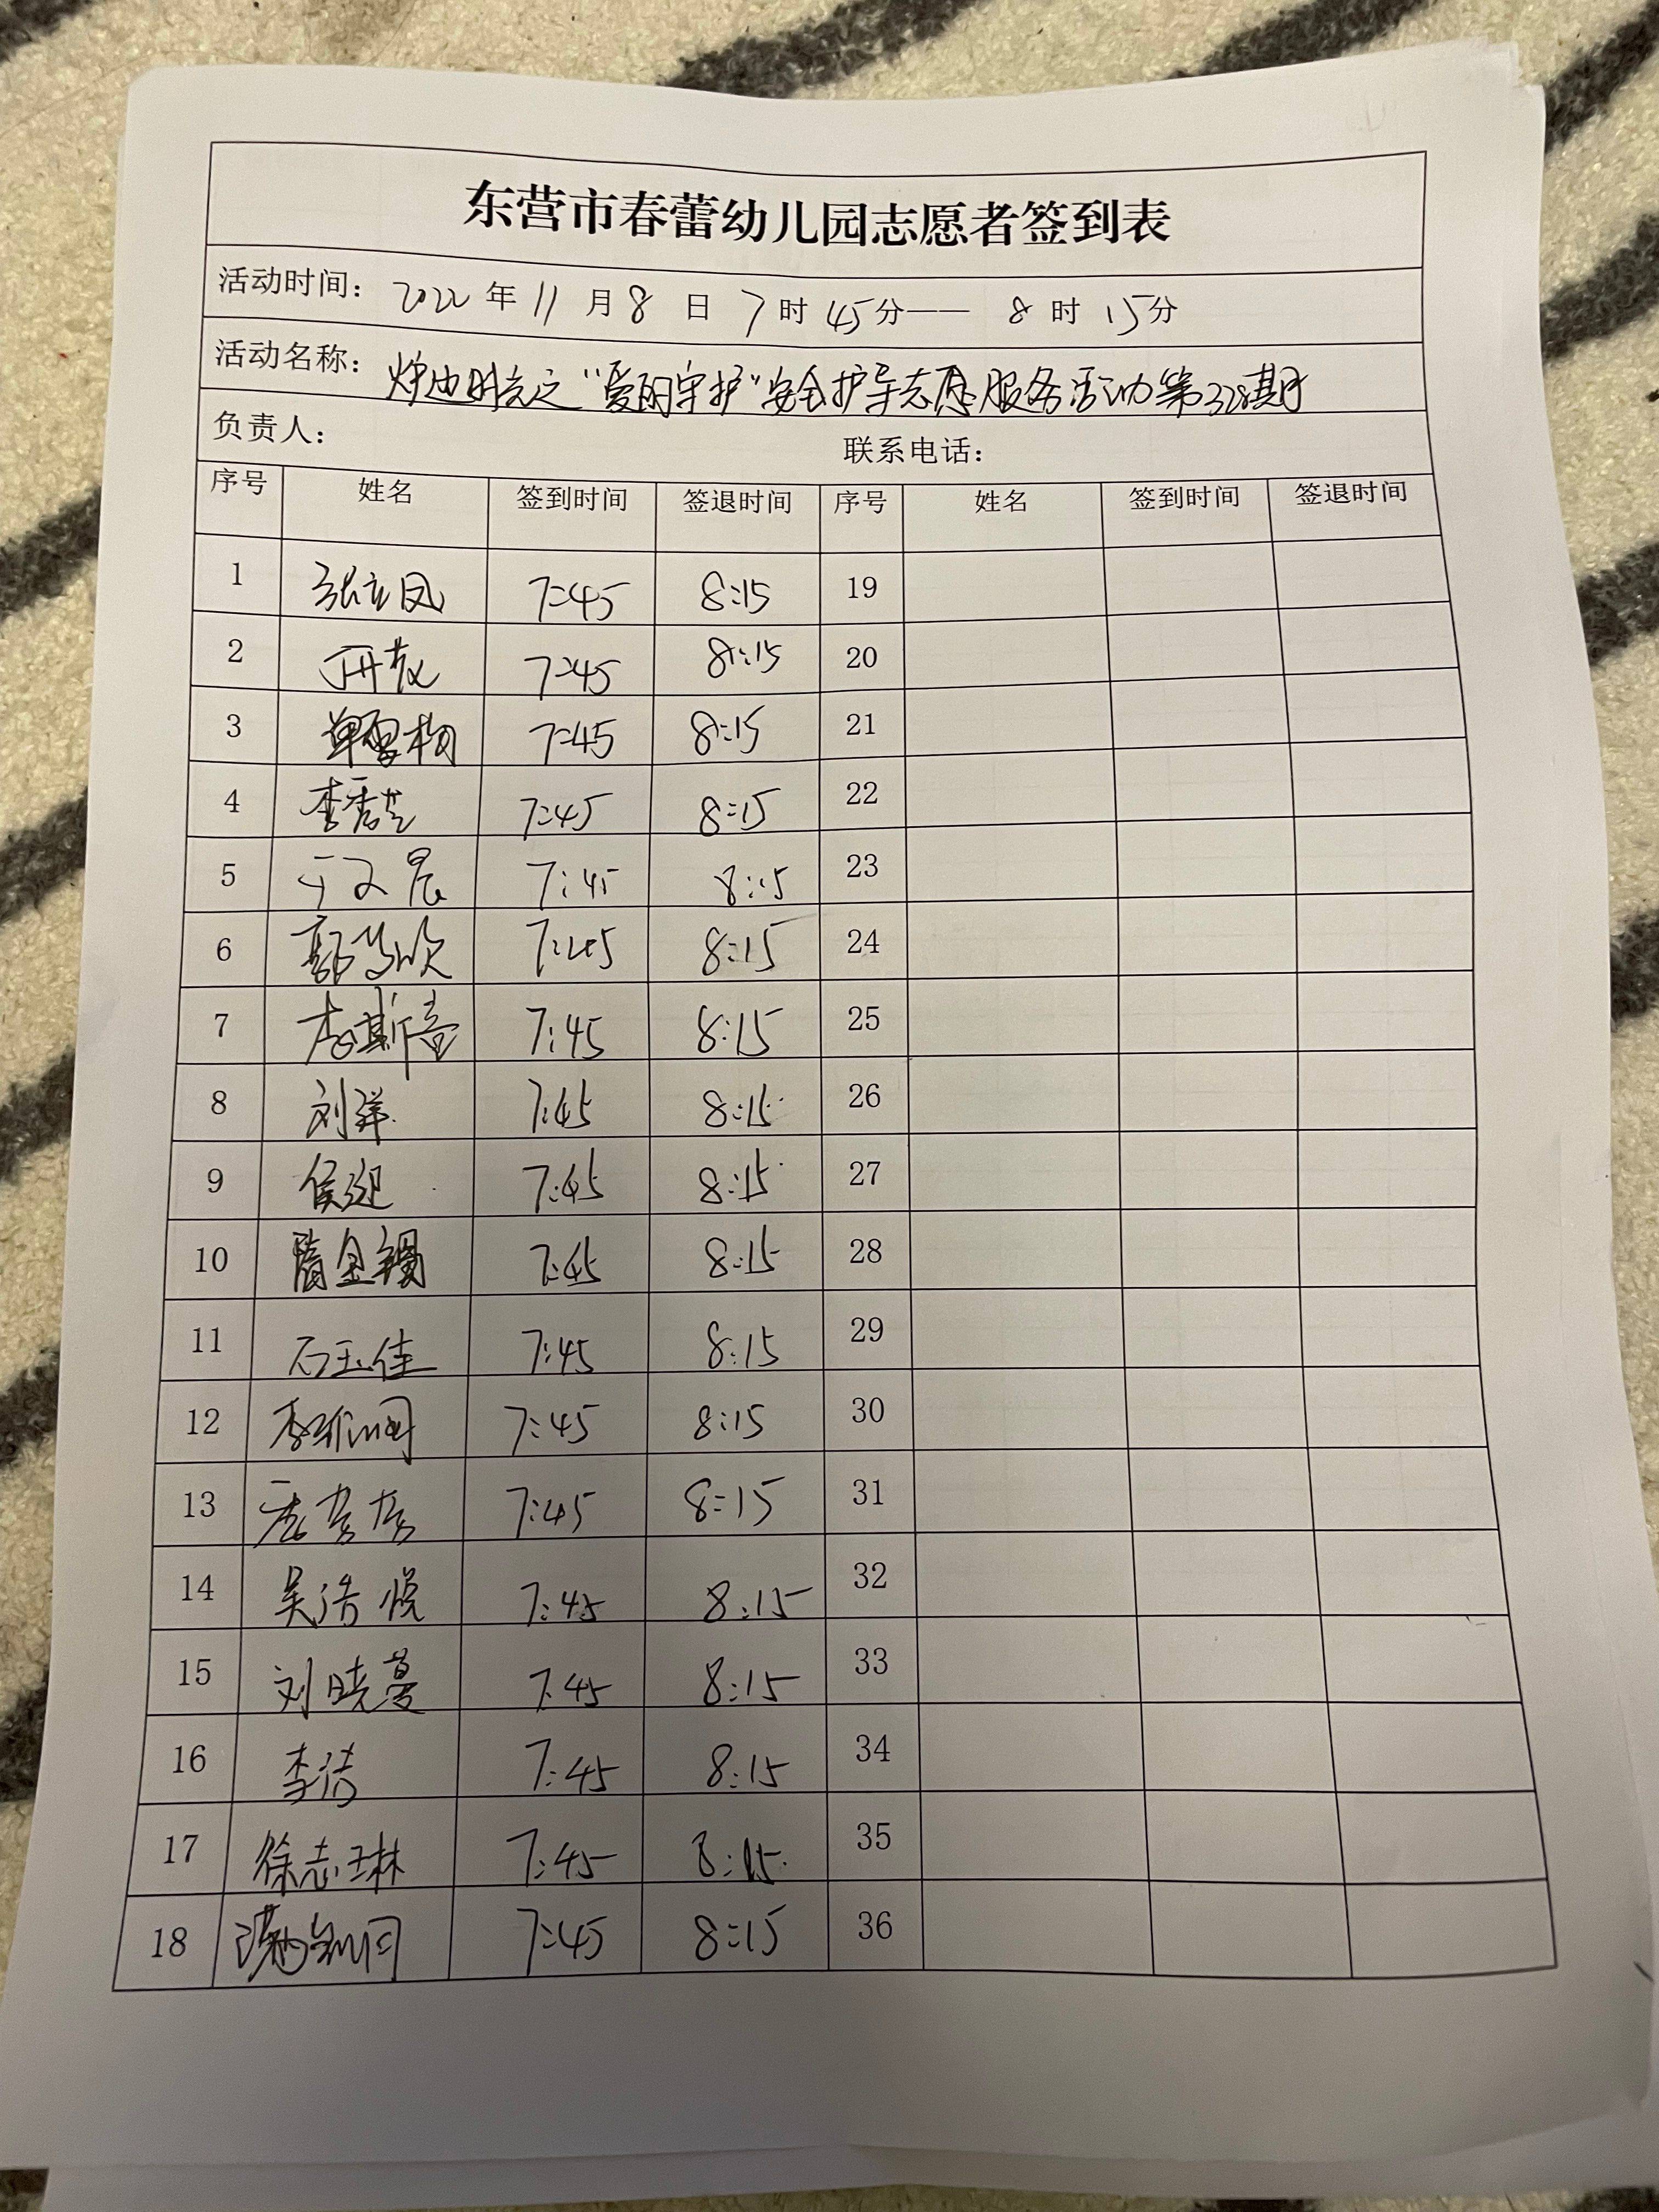 东营市春蕾幼儿园志愿者签到表
活动时间：2022年11月8日7时45分——8时15分
活动名称：炉边时光之“爱的守护”安全护导志愿服务活动第328期
负责人： 联系电话：
序号 姓名 签到时间 签退时间 序号 姓名 签到时间 签退时间
1 张立凤 7:45 8:15 19
2 7:45 8:15 20
3 单雪梅 7:45 8:15 21
4 李秀芝 7:45 8:15 22
5 于文晨 7:45 8:15 23
6 郭梦欣 7:45 8:15 24
7 李斯音 7:45 8:15 25
8 刘洋 7:45 8:15 26
9 侯延 7:45 8:15 27
10 隋金锡 7:45 8:15 28
11 石玉佳 7:45 8:15 29
12 7:45 8:15 30
13 7:45 8:15 31
14 吴浩悦 7:45 8:15 32
15 刘晓蔓 7:45 8:15 33
16 李洁 7:45 8:15 34
17 徐志琳 7:45 8:15 35
18 7:45 8:15 36